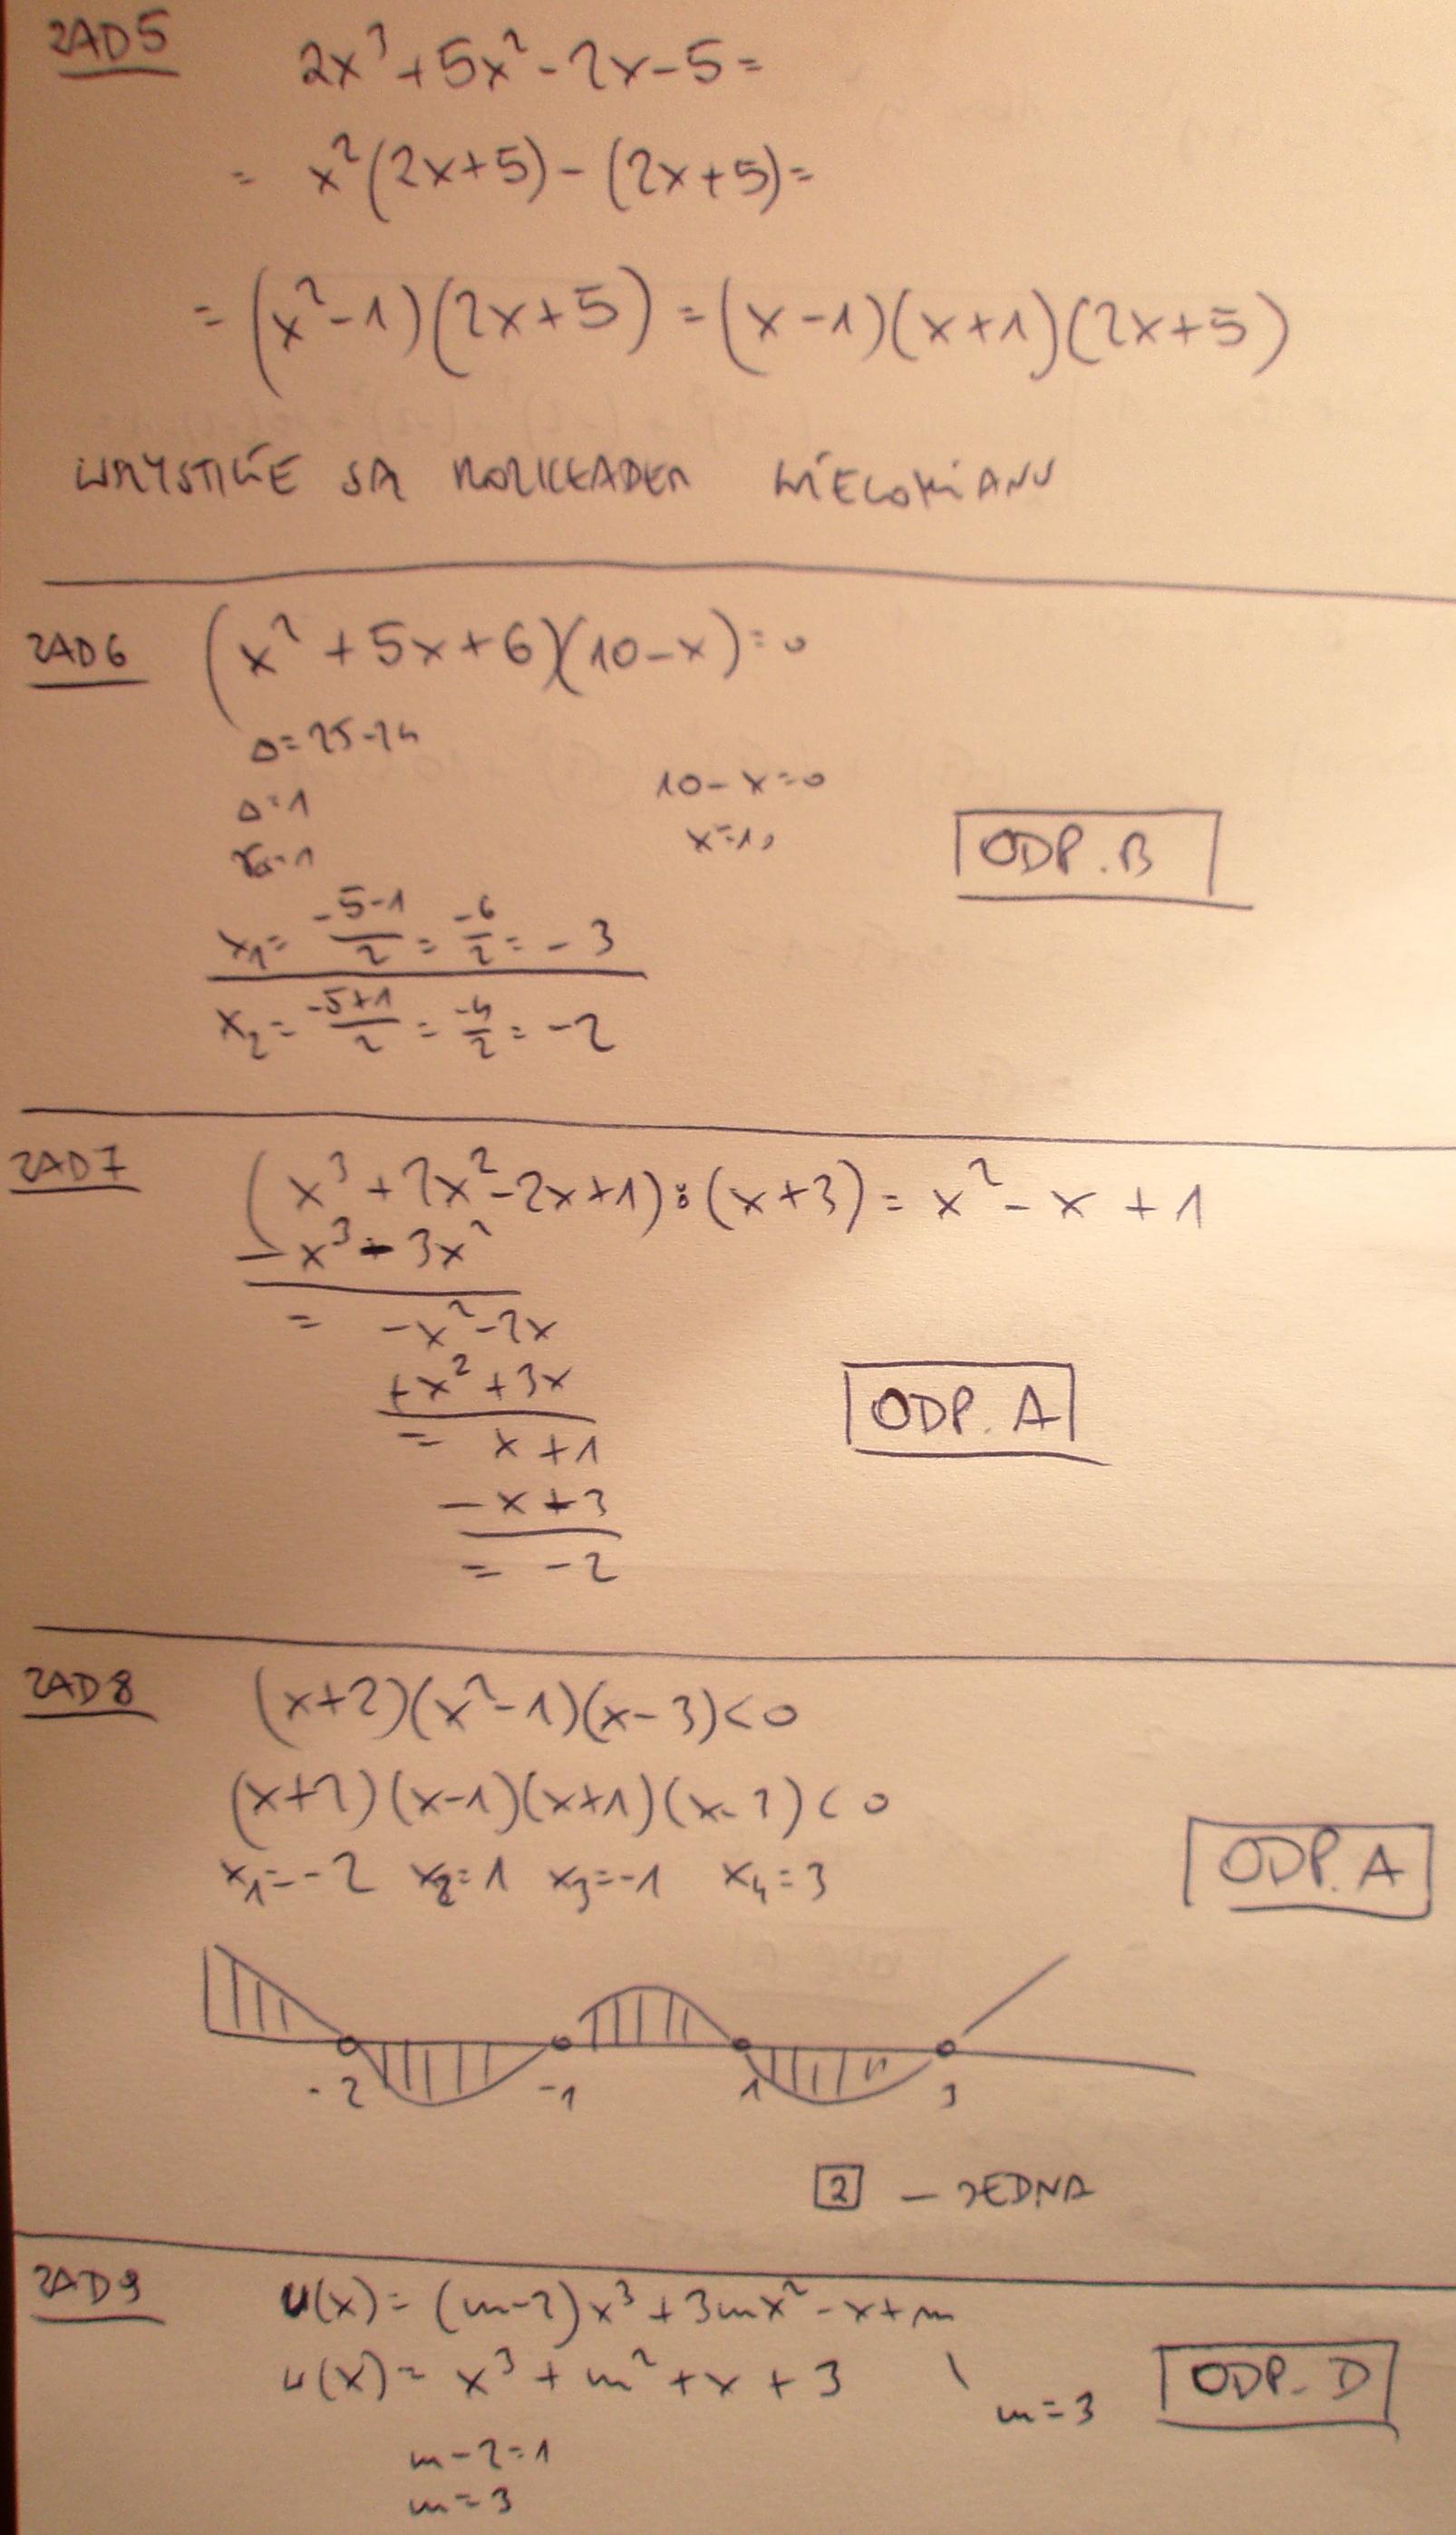 ZAD5
2x³+5x²-2x-5=
= x²(2x+5)-(2x+5)=
= (x²-1)(2x+5) = (x-1)(x+1)(2x+5)
WSZYSTKIE SĄ ROZKŁADEM WIELOMIANU
ZAD6
(x²+5x+6)(10-x)=0
Δ=25-24
10-x=0
Δ=1
x=10
√Δ=1
ODP. B
x₁= (-5-1)/2 = -6/2 = -3
x₂= (-5+1)/2 = -4/2 = -2
ZAD7
(x³+2x²-2x+1):(x+3)= x²-x+1
-x³-3x²
= -x²-2x
+x²+3x
= x+1
ODP. A
-x-3
= -2
ZAD8
(x+2)(x²-1)(x-3)<0
(x+2)(x-1)(x+1)(x-3)<0
x₁=-2 x₂=1 x₃=-1 x₄=3
ODP. A
-2 -1 1 3
2 - JEDNA
ZAD9
u(x)= (m-2)x³+3mx²-x+m
u(x)= x³+m²+x+3
m=3
ODP. D
m-2=1
m=3